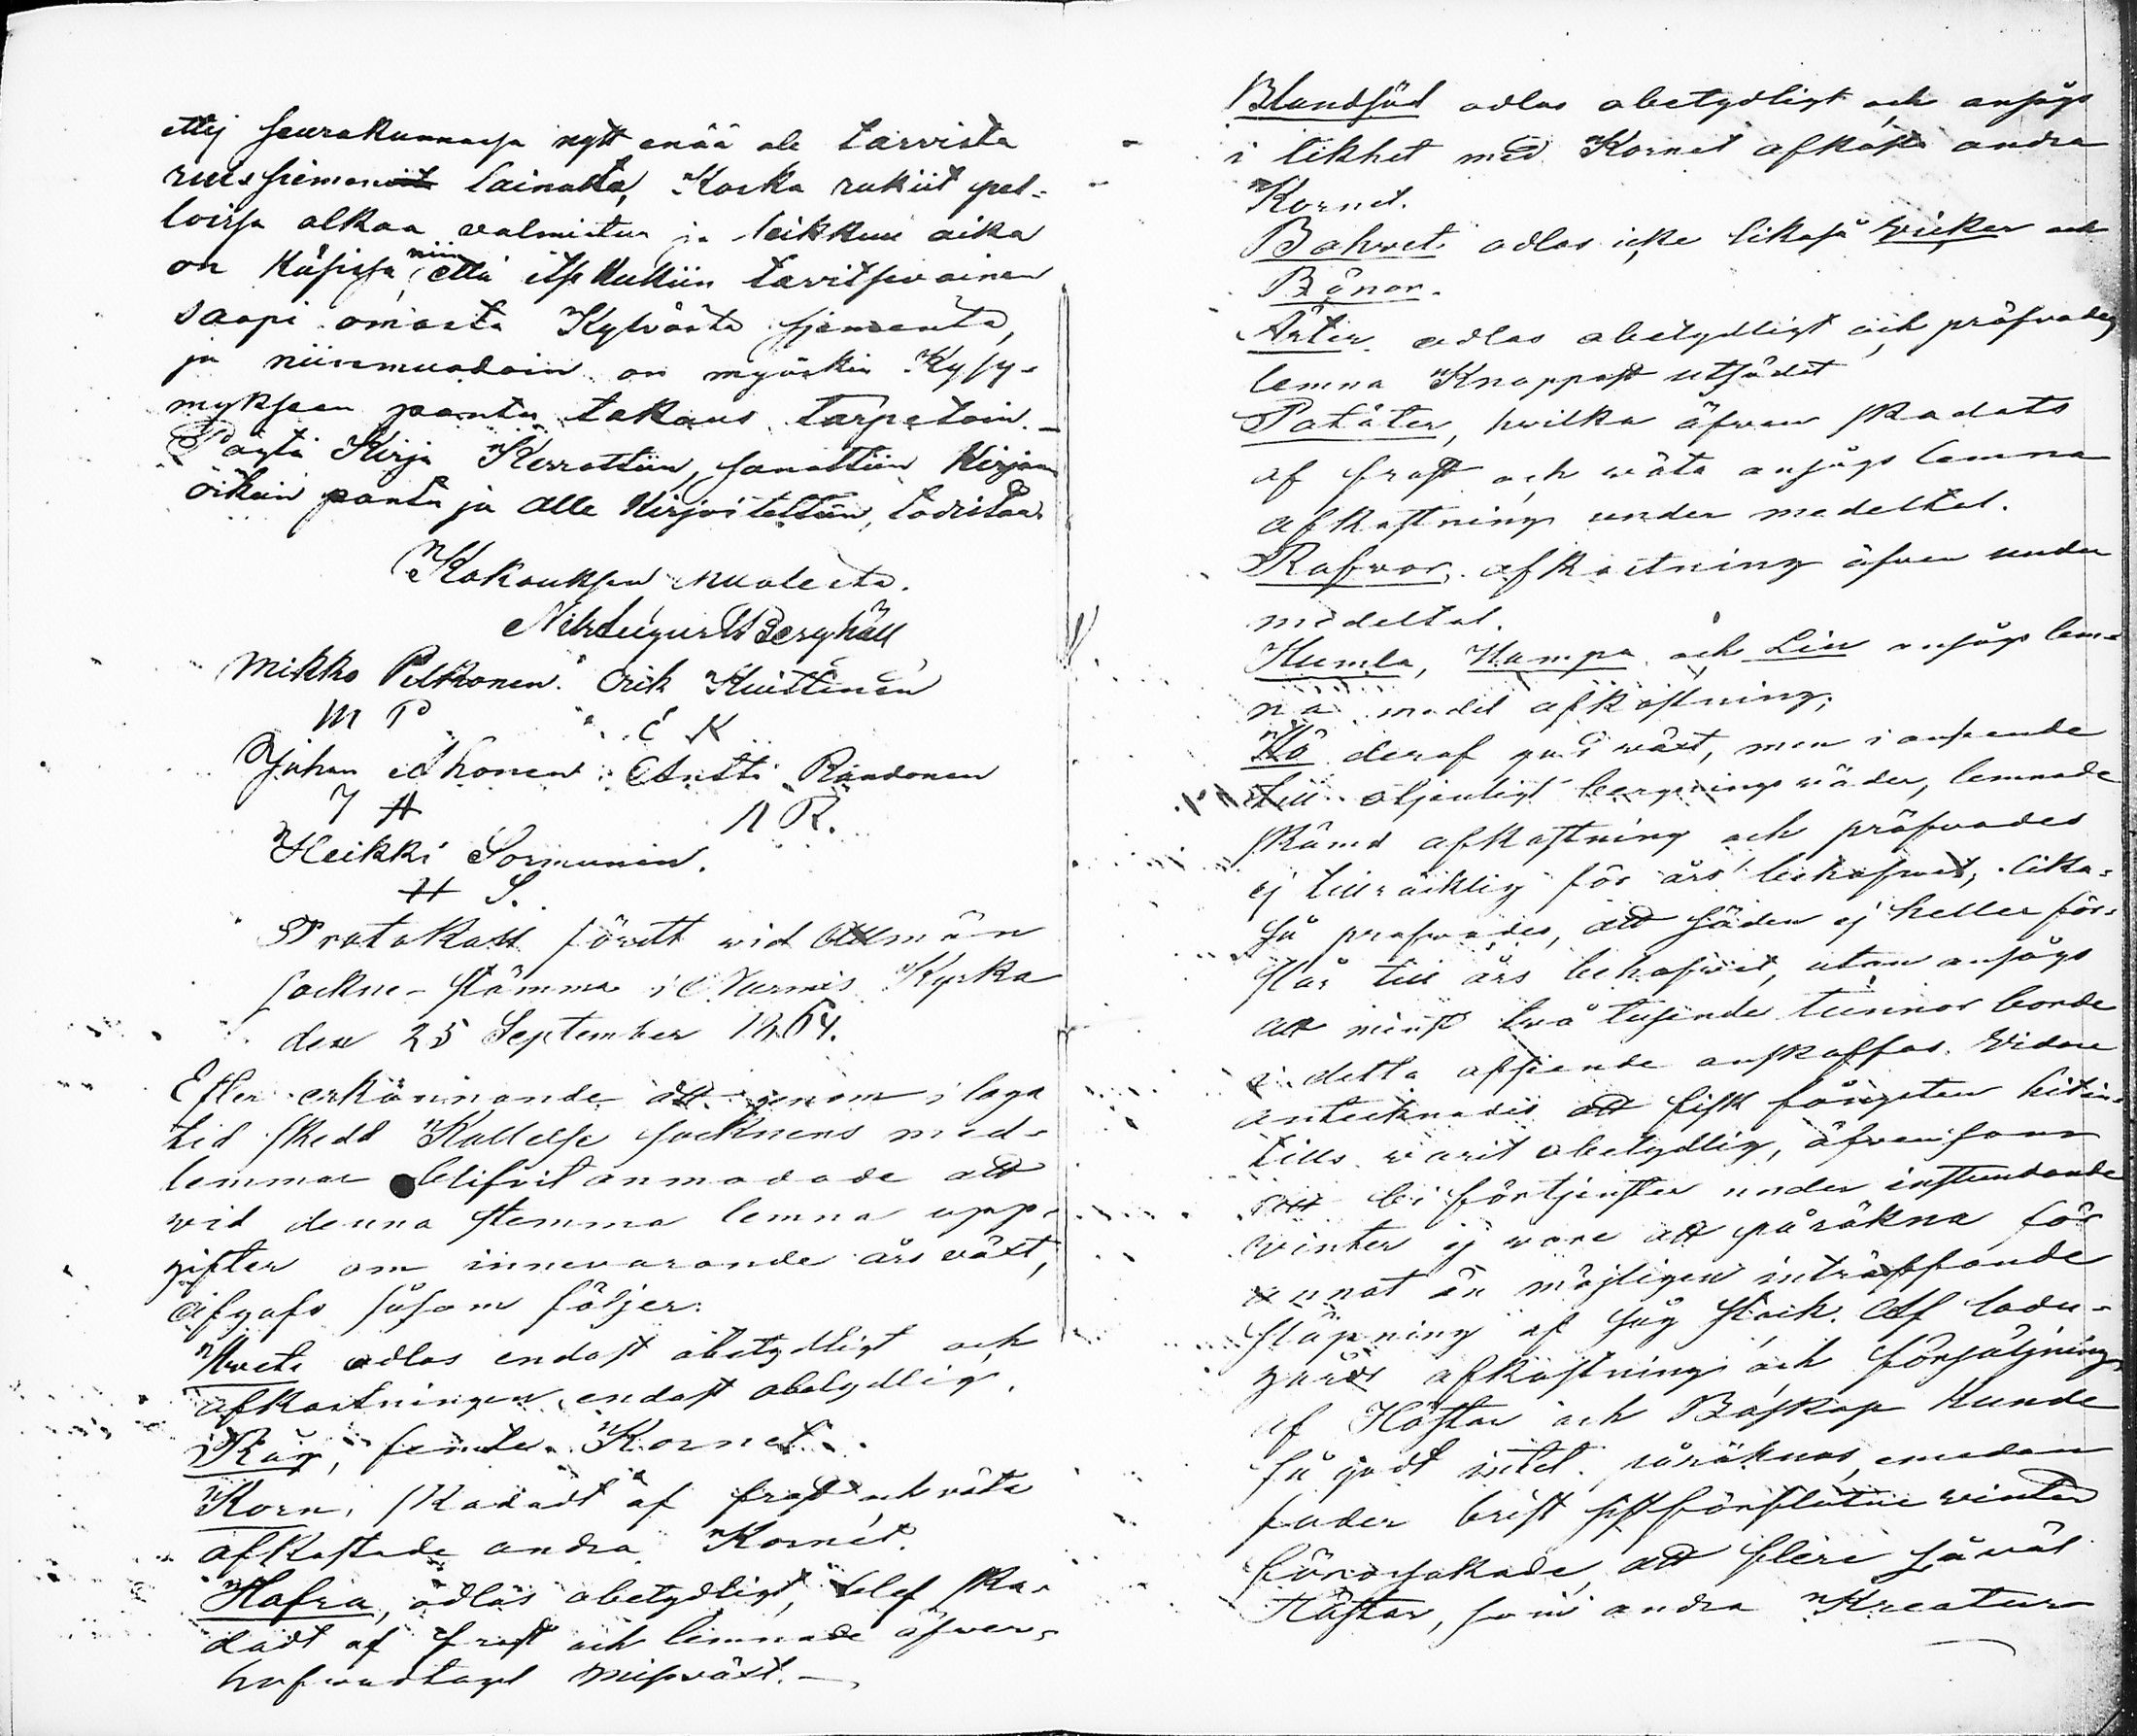 ettej seurakunnassa nytt enää ole tarvista
ruis siemenit lainatta, Koska rukiit pel-
loissa alkaa valmistua ja leikkuu aika
on Käsissä, niin että itse Kukiin tarvitsevainen
saapi omasta Kylvösta sjementä,
ja niinmuodoin on myöskin Kysy-
mykseen pantu takaus tarpetoin.—
Pöytä Kirja Kerrottiin, sanottiin Kirjaan
oikein pantu ja alle Kirjoitettiin, todistaa.
Kokouksen puolesta.
Nils August Berghäll
Mikko Pitkonen. Erik Kuittinen
M P E K
Johan Ahonen. Antti Rändönen
J A A R.
Heikki Sormunen.
H S.
Protokoll fördt wid Allmän
sockne-stämma i Nurmis Kyrka
den 25 September 1864.
Efter erkännande att genom i laga
tid skedd Kallelse socknens med-
lemmar blifvit anmodade att
wid denna stemma lemna upp-
gifter om innevarande års växt,
afgafs såsom följer:
Hvete odlas endast obetydligt och
afkastningen endast obetydlig.
Råg, femte Kornet.
Korn, skadadt af frost och väta
afkastade andra Kornet.
Hafra, odlas obetydligt, blef ska-
dadt af frost och lemnade öfver-
hufvudtaget missväxt.—
Blandsäd odlas obetydligt och ansågs
i likhet med Kornet afkasta andra
Kornet.
Bohvet odlas icke likaså Vicker och
Bönor.
Ärter odlas obetydligt och pröfvades
lemna Knappast utsädet
Potäter, hvilka äfven skadats
af frost och wäta ansågs lemna
afkastning under medeltal.
Rofvor, afkastning äfven under
medeltal.
Humla, Hampa och Lin ansågs lem-
na medel afkastning;
Hö deraf god växt, men i anseende
till otjenligt bergnings väder, lemnade
skämd afkastning och pröfvades
ej tillräcklig för års behofvet, lika-
så profvades, att säden ej heller för-
slår till års behofvet, utan ansågs
att minst två tusende tunnor borde
i detta afseende anskaffas. Vidare
antecknades att fisk fångsten hitin-
tills varit obetydlig, äfvensom
att bi förtjenster under instundande
vinter ej vore att påräkna för
annat än möjligen inträffande
släpning af såg stock. Af ladu-
gårds afkastning och försäljning
af Hästar och Boskap kunde
så godt intet påräknas, emedan
foder brist sistförflutne vinter
förorsakade, att flere såväl
Hästar, som andra Kreatur